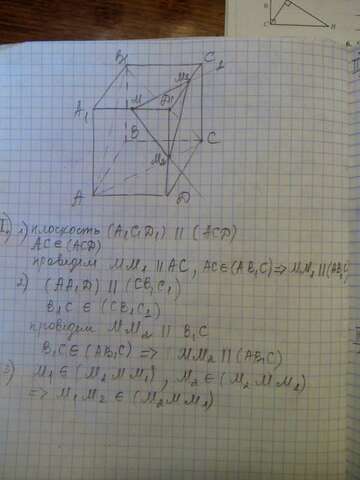 B₁
C₁
M₁
A₁
M
D₁
B
C
M₂
A
D
1) плоскость (A₁C₁D₁) || (ACD)
AC ∈ (ACD)
проведём MM₁ || AC, AC ∈ (AB₁C) => MM₁ || (AB₁C)
2) (AA₁D) || (CB₁C₁)
B₁C ∈ (CB₁C₁)
проведём MM₂ || B₁C
B₁C ∈ (AB₁C) => MM₂ || (AB₁C)
3) M₁ ∈ (M₂MM₁), M₂ ∈ (M₂MM₁)
=> M₁M₂ ∈ (M₂MM₁)